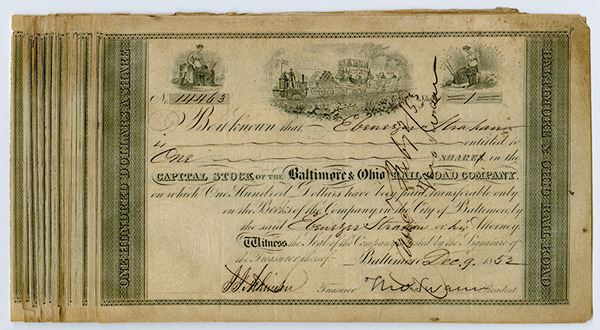 No. 14463
1
Be it known that Ebenezer Strahan
is entitled to
One SHARE in the
CAPITAL STOCK OF THE Baltimore & Ohio RAILROAD COMPANY,
on which One Hundred Dollars have been paid, transferable only
on the Books of the Company, in the City of Baltimore, by
the said Ebenezer Strahan or his Attorney
Witness the Seal of the Company and by the Signature of
the Treasurer thereof Baltimore Dec. 9. 1852
Treasurer President
ONE HUNDRED DOLLARS A SHARE
BALTIMORE & OHIO RAIL ROAD